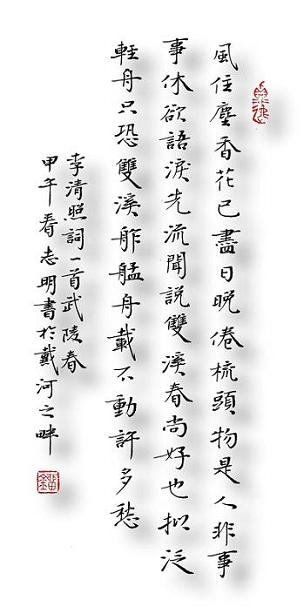 風住塵香花已盡日晚倦梳頭物是人非事
事休欲語淚先流聞説雙溪春尚好也拟泛
輕舟只恐雙溪舴艋舟載不動許多愁
李清照詞一首武陵春
甲午春志明書於戴河之畔